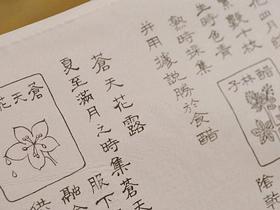 花四
數十枚
生時色青
熟時採集
并用據說勝於食醋
醋林子
陰乾
蒼天花露
夏至滿月之時集蒼天
服下
融
蒼天花